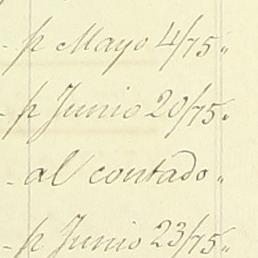 - p Mayo 4/75 "
- p Junio 20/75 "
- al contado "
- p Junio 23/75 "